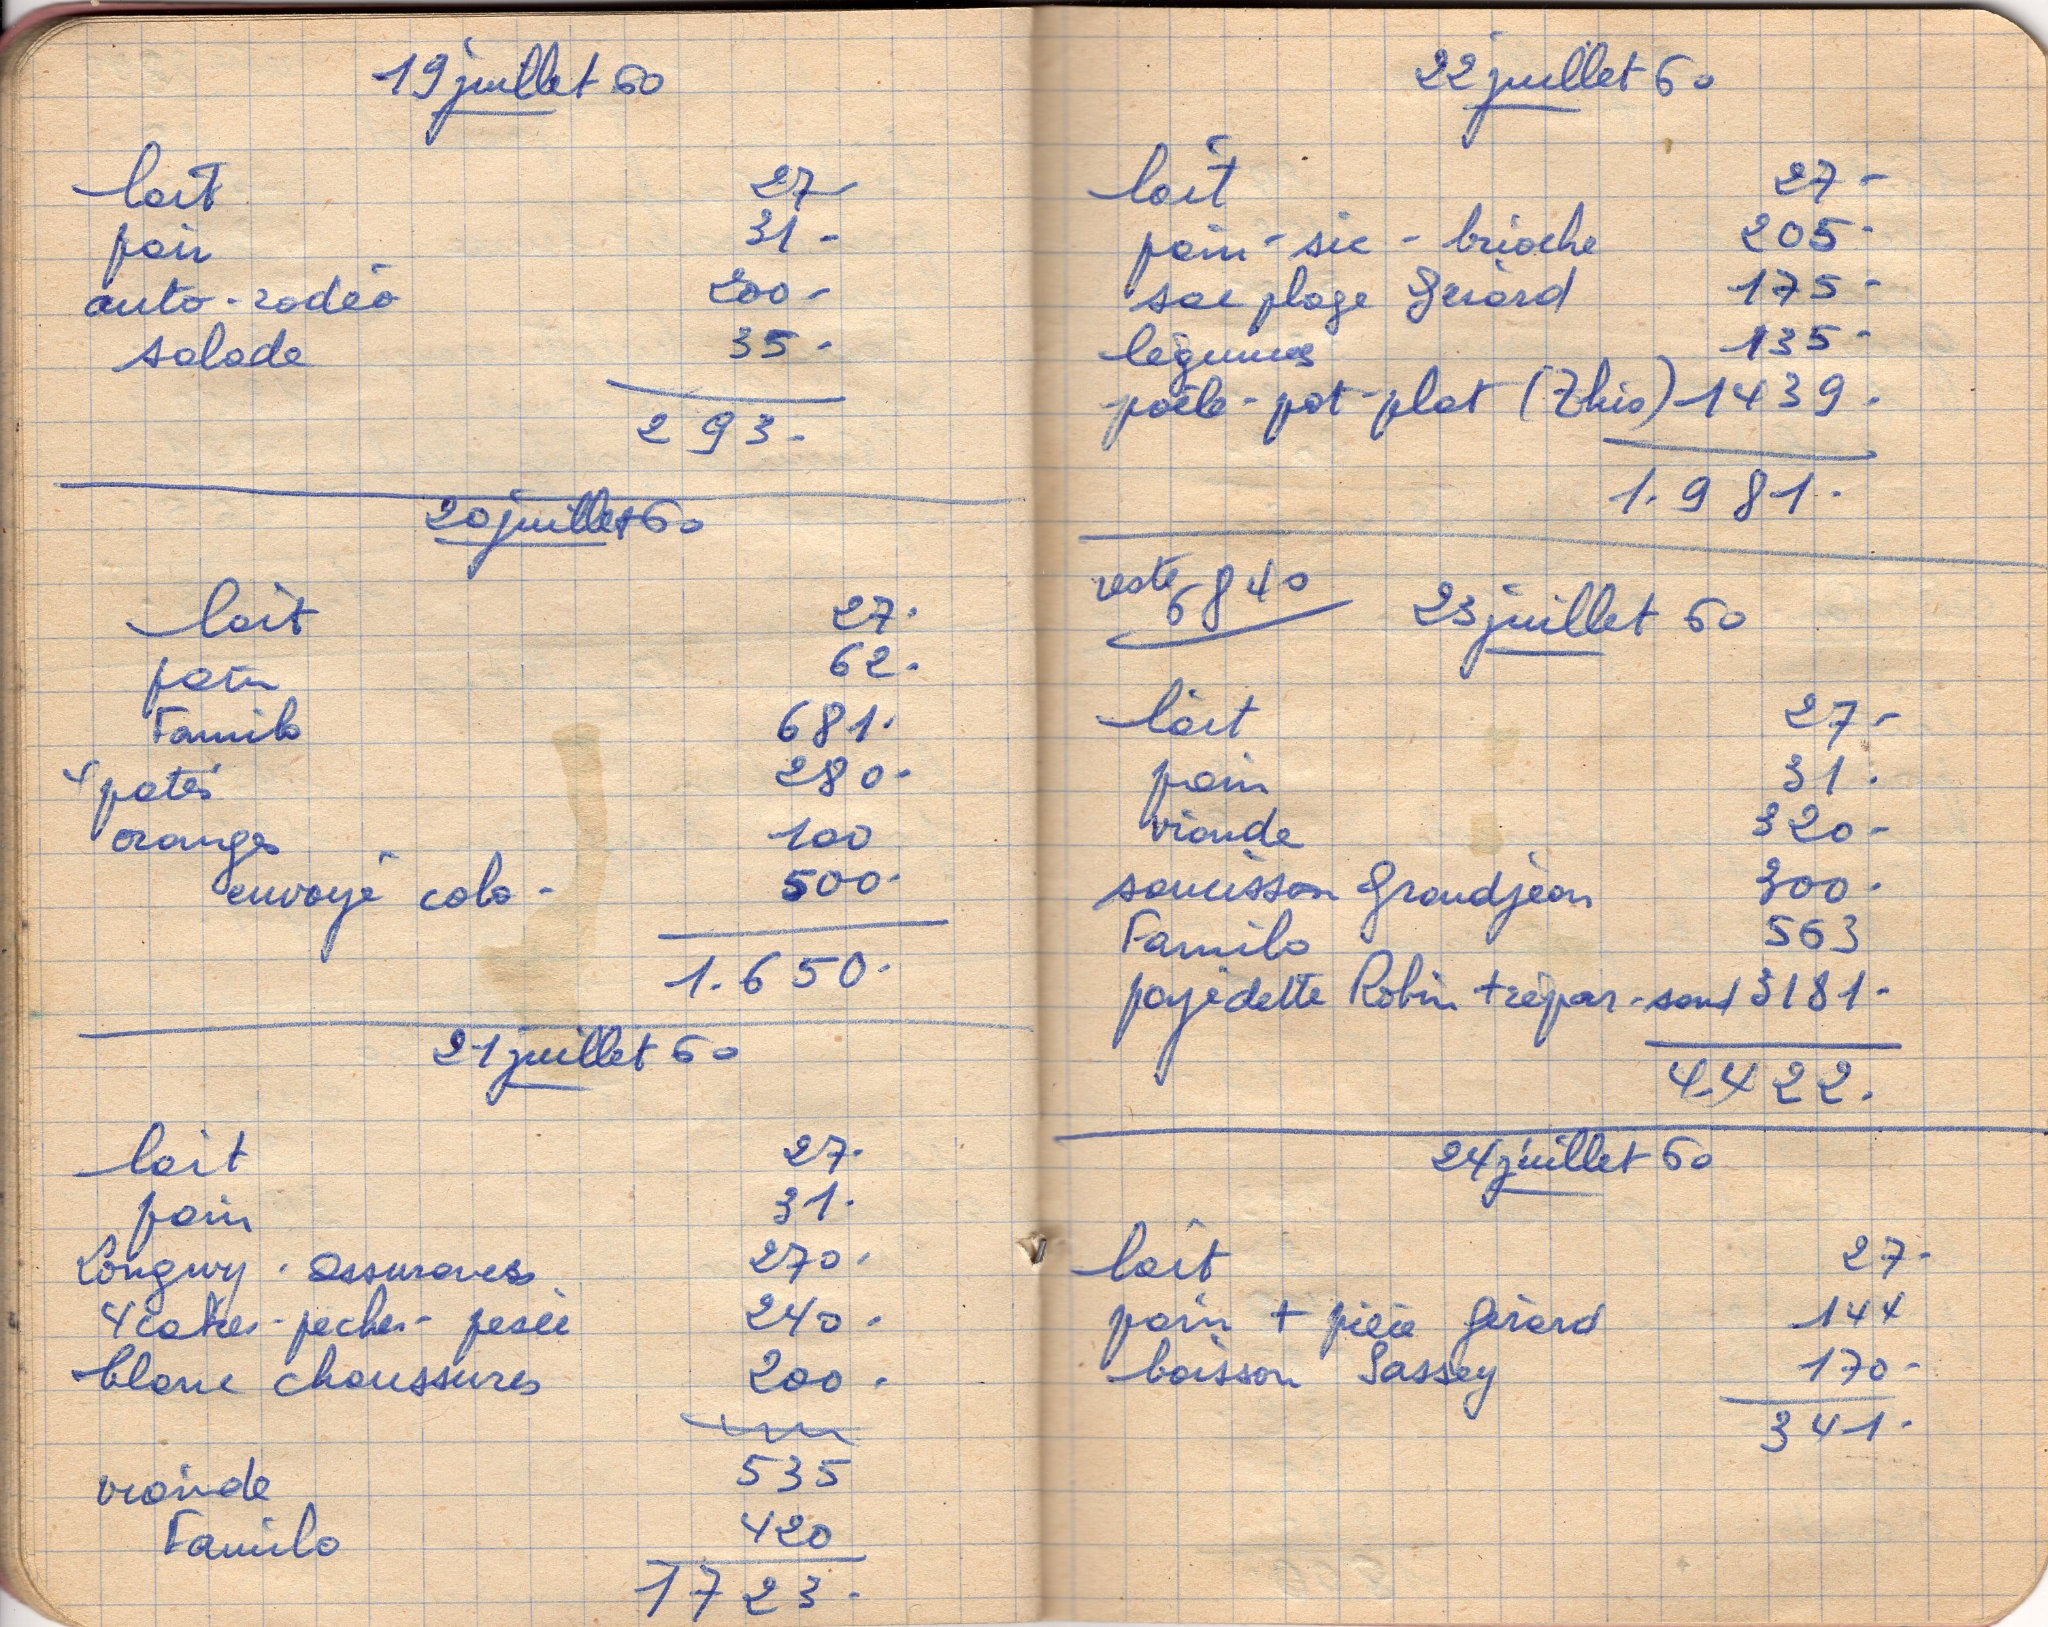 19 juillet 60
lait 27-
pain 31-
auto-rodéo 200-
salade 35-
293-
20 juillet 60
lait 27.
pain 62.
Familo 681.
4 patés 280-
oranges 100
envoyé colo- 500-
1.650-
21 juillet 60
lait 27.
pain 31.
Longwy. assurances 270.
4 cakes-peches- pesée 240.
blanc chaussures 200.
viande 535
Familo 420
1723.
22 juillet 60
lait 27-
pain-sic-brioche 205-
sac plage Gérard 175-
légumes 135-
poële-pot-plat (Thio) 1439.
1.981.
reste 6840
23 juillet 60
lait 27-
pain 31.
viande 320-
saucisson Grandjean 300.
Familo 563
payé dette Robin + répar- 3181-
4.422.
24 juillet 60
lait 27-
pain + pièce Gérard 144
boisson Sassey 170-
341.